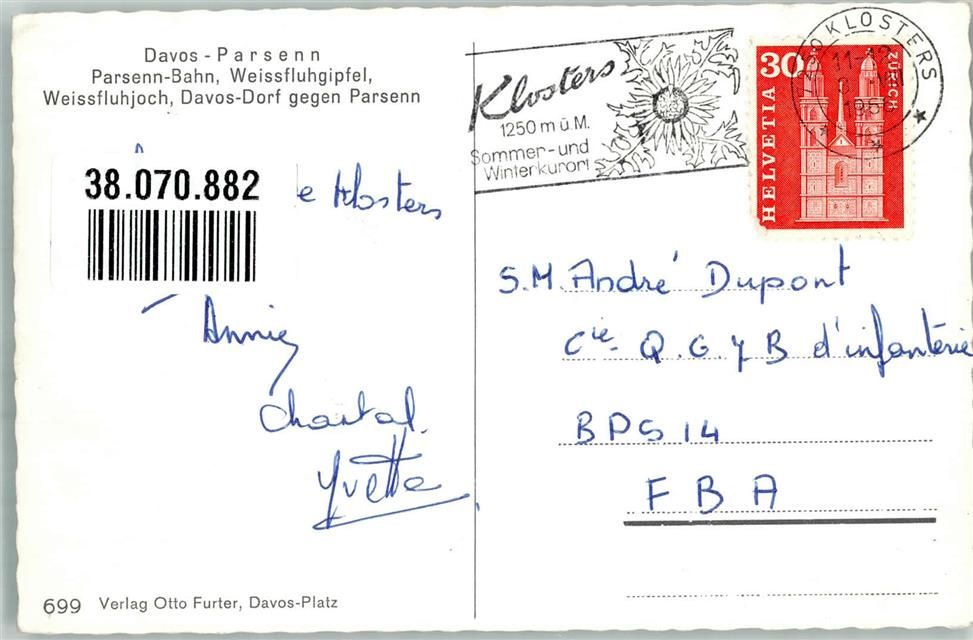 Davos - Parsenn
Parsenn-Bahn, Weissfluhgipfel,
Weissfluhjoch, Davos-Dorf gegen Parsenn
38.070.882
e Klosters
Annie
Chantal.
Yvette
699 Verlag Otto Furter, Davos-Platz
Klosters
1250 m ü. M.
Sommer- und
Winterkurort
KLOSTERS
11-12
30
HELVETIA
ZÜRICH
S.M. André Dupont
Cie. Q.G. 7 B d'infanterie
BPS 14
FBA